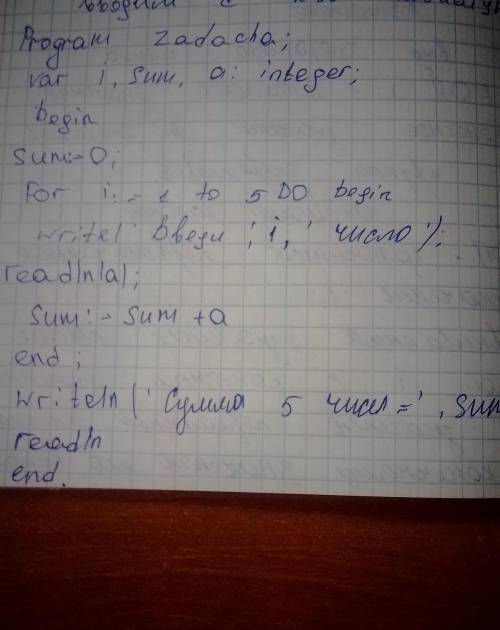 вводим с
Program Zadacha;
var i, sum, a: integer;
begin
sum:=0;
For i:=1 to 5 DO begin
write('Введи ', i, ' число');
readln(a);
Sum:=Sum+a
end;
writeln('Сумма 5 чисел=', sum
readln
end.